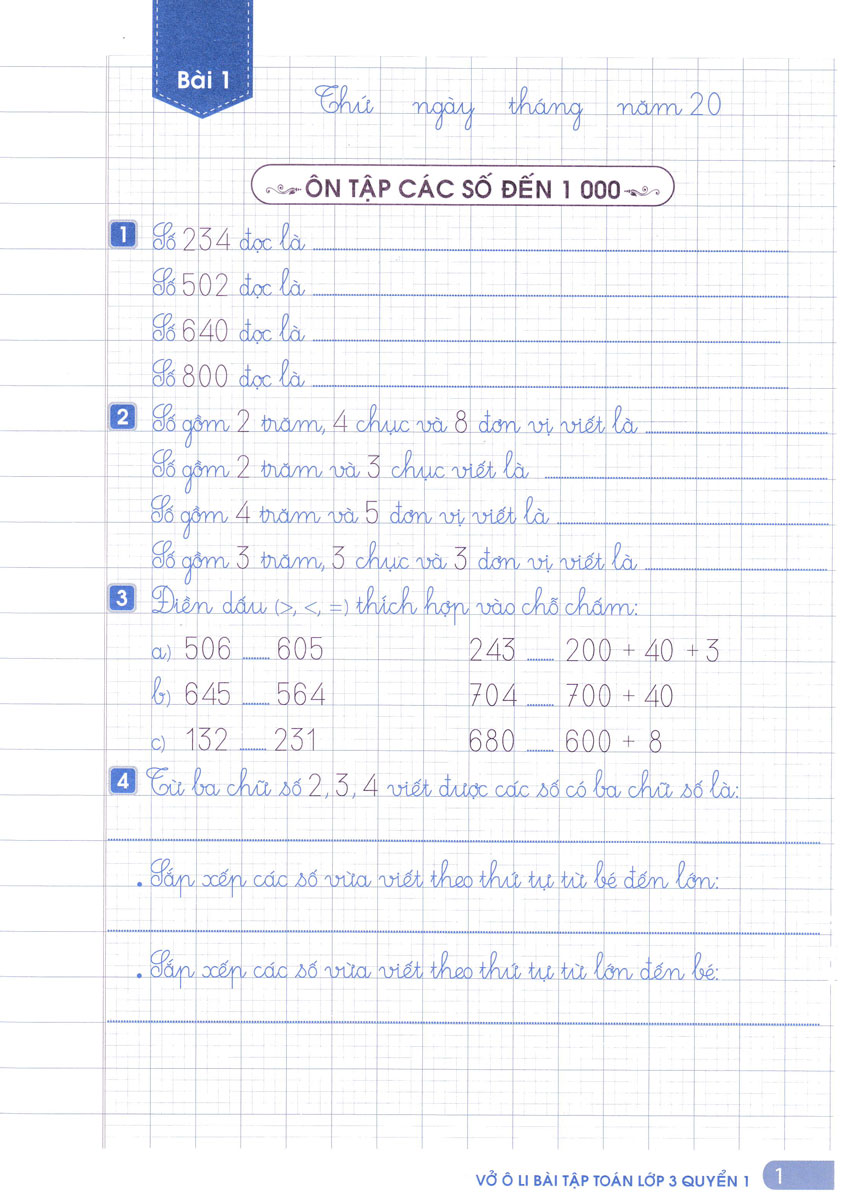 Bài 1
Thứ ngày tháng năm 20
ÔN TẬP CÁC SỐ ĐẾN 1 000
1 Số 234 đọc là
Số 502 đọc là
Số 640 đọc là
Số 800 đọc là
2 Số gồm 2 trăm, 4 chục và 8 đơn vị viết là
Số gồm 2 trăm và 3 chục viết là
Số gồm 4 trăm và 5 đơn vị viết là
Số gồm 3 trăm, 3 chục và 3 đơn vị viết là
3 Điền dấu (>, <, =) thích hợp vào chỗ chấm:
a) 506 ........ 605 243 ........ 200 + 40 + 3
b) 645 ........ 564 704 ........ 700 + 40
c) 132 ........ 231 680 ........ 600 + 8
4 Từ ba chữ số 2, 3, 4 viết được các số có ba chữ số là:
. Sắp xếp các số vừa viết theo thứ tự từ bé đến lớn:
. Sắp xếp các số vừa viết theo thứ tự từ lớn đến bé:
VỞ Ô LI BÀI TẬP TOÁN LỚP 3 QUYỂN 1 1